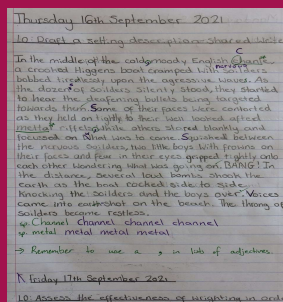 Thursday 16th September 2021
LO: Draft a setting description Shared Write
C
In the middle of the cold, moody, English Chanle
a crooked Higgens boat cramped with nervous soilders
bobbed tirelessly upon the agressive waves. As
the dozens of soilders silently stood, they started
to hear the deafening bullets being targeted
towards them. Some of their faces were contorted
as they held on tightly to their well looked after
mettal rifles, while others stared blankly and
focused on what was to come. Squished between
the nervous soilders, two little boys with frowns on
their faces and fear in their eyes gripped tightly onto
each other wondering what was going on. BANG! In
the distance, several loud bombs shook the
earth as the boat rocked side to side
knocking the soilders and the boys over. Voices
came into earshot on the beach. The throng of
soilders become restless.
sp. Channel channel channel channel
sp. metal metal metal metal
→ Remember to use a , in lists of adjectives.
Friday 17th September 2021
LO: Assess the effectiveness of wrighting in ord